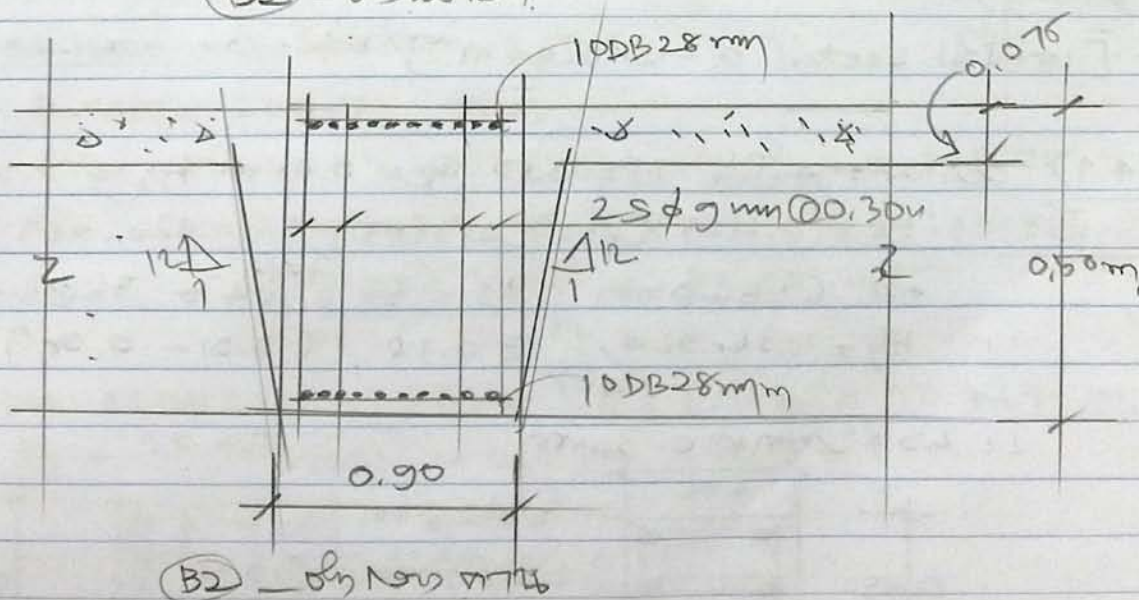 B2
10DB28mm
0.076
2Sφ9mm@0.30m
12
1
12
1
0.50m
10DB28mm
0.90
B2